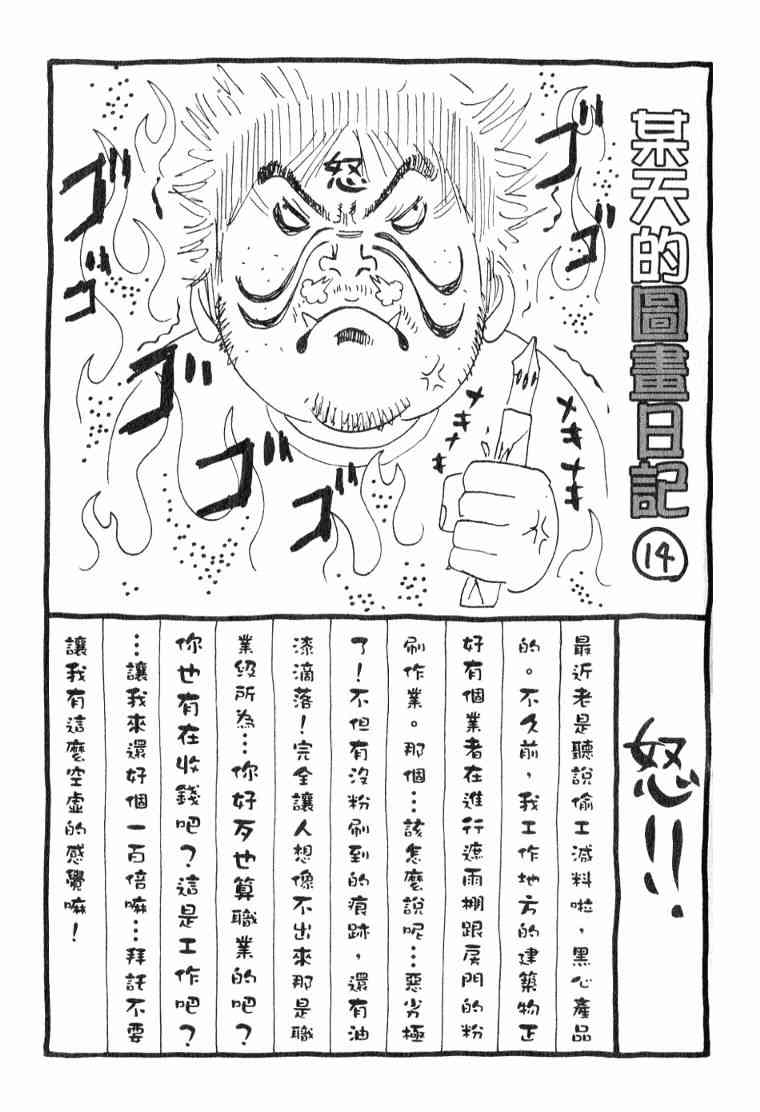 某天的圖畫日記
14
怒
ゴゴ
ゴゴ
ゴ
ゴ
ゴ
メキメキ
メキメキ
怒!!
最近老是聽說偷工減料啦,黑心產品
的。不久前,我工作地方的建築物正
好有個業者在進行遮雨棚跟房門的粉
刷作業。那個…該怎麼說呢…惡劣極
了!不但有沒粉刷到的痕跡,還有油
漆滴落!完全讓人想像不出來那是職
業級所為…你好歹也算職業的吧?
你也有在收錢吧?這是工作吧?
…讓我來還好個一百倍嘛…拜託不要
讓我有這麼空虛的感覺嘛!